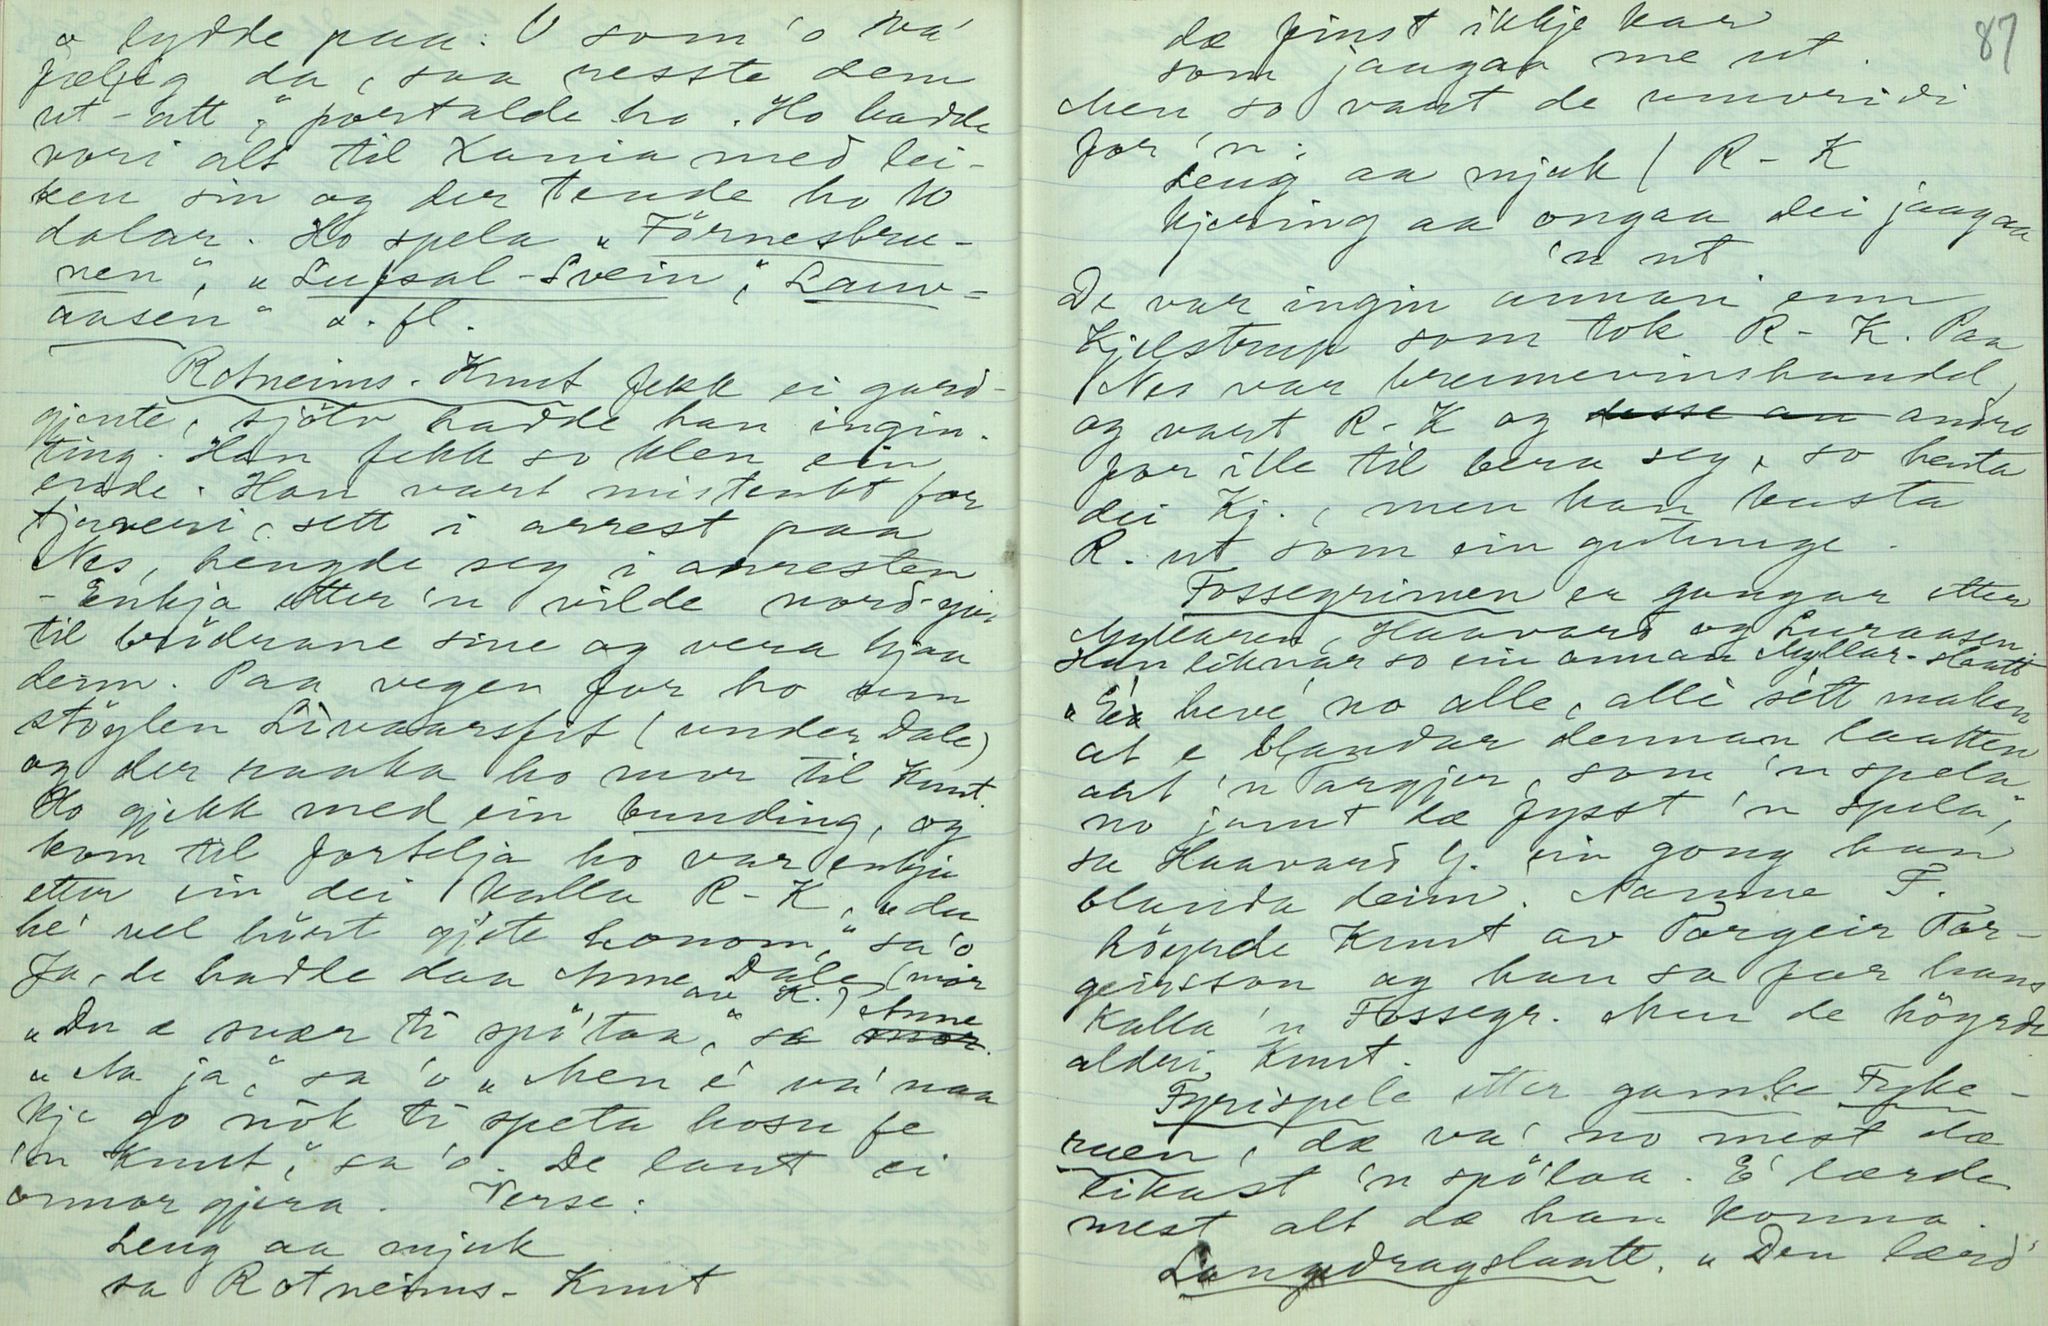 o lydde paa. O som 'o va'
fælig da, saa resste dem
ut-att," fortalde ho. Ho hadde
vori alt til Xania med lei-
ken sin og der tende ho 10
dalar. Ho spela "Förnesbru-
nen", "Lufsal-Svein", Lauv-
aasen" o. fl.
Rotneims-Knut fekk ei gard-
gjente, sjölv hadde han ingin-
ting. Han fekk so klen ein
ende. Han vart mistenkt for
tjuveri, sett i arrest paa
Nes, hengde seg i arresten
- Enkja etter 'n vilde nord-gjö
til brödrane sine og vera hjaa
deim. Paa vegen for ho um
stöylen Livaarsfit (under Dale)
og der raaka ho mor til Knut.
Ho gjekk med ein bunding, og
kom til fortelja ho var enkja
etter ein dei kalla R-K, "du
he' vel hört gjete honom," sa 'o
Ja, de hadde daa Anne Dale (mor
av K.)
"Du æ svær ti spö'taa," sa Anne
"Aa ja," sa 'o "Men e' va' naa
kje go nok ti speta hosu fe
'n Knut," sa 'o. De laut ei
onnor gjera. Verse:
Leng aa mjuk
sa Rotneims-Knut
87
dæ finst ikkje kar
som jaagaa me ut.
Men so vart de umvridi
for 'n:
Leng aa mjuk / R-K
kjering aa ongaa dei jaagaa
'n ut
De var ingin annan enn
Kjelstrup som tok R-K. Paa
Nes var brennevinshandel,
og vart R-K og desse an andre
for ille til bera seg, so henta
dei Kj., men han kasta
R. ut som ein gutunge.
Fossegrimen er gangar etter
Myllaren, Haavard og Luraasen.
Han liknar so ein annan Myllar-slaatt
"E' heve no alle, alli sett maken
at e blandar denman laatten
aat 'n Targjer, som 'n spela
no jamt dæ fysst 'n spela",
sa Haavard G. ein gong han
blanda deim. Namne F.
höyrde Knut av Torgeir Tor-
geirsson og han sa far hans
kalla 'n Fossegr. Men de höyrde
alderi Knut.
Fyrispele etter gamle Fyke-
ruen, dæ va' no mest dæ
likast 'n spölaa. E' lærde
mest alt dæ han konna.
Langedragslaatt. "Den lærd'